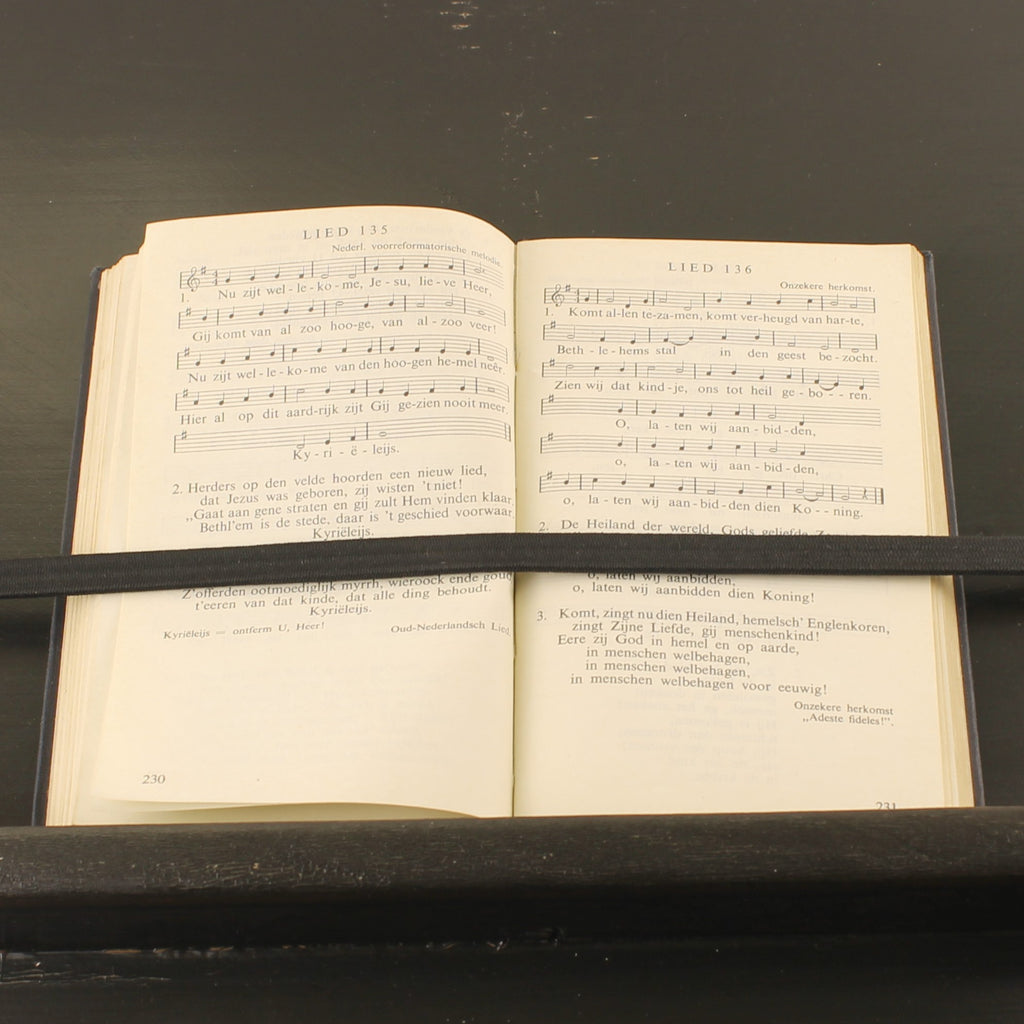 LIED 135
Nederl. voorreformatorische melodie.
1. Nu zijt wel - le - ko - me, Je - su, lie - ve Heer,
Gij komt van al zoo hoo - ge, van al - zoo veer!
Nu zijt wel - le - ko - me van den hoo - gen he - mel neêr.
Hier al op dit aard - rijk zijt Gij ge - zien nooit meer.
Ky - ri - ë - leijs.
2. Herders op den velde hoorden een nieuw lied,
dat Jezus was geboren, zij wisten 't niet!
„Gaat aan gene straten en gij zult Hem vinden klaar
Bethl'em is de stede, daar is 't geschied voorwaar.
Kyriëleijs.
Z'offerden ootmoediglijk myrrh, wieroock ende goud
t'eeren van dat kinde, dat alle ding behoudt.
Kyriëleijs.
Kyriëleijs = ontferm U, Heer!
Oud-Nederlandsch Lied.
230
LIED 136
Onzekere herkomst.
1. Komt al - len te - za - men, komt ver - heugd van har - te,
Beth - le - hems stal in den geest be - zocht.
Zien wij dat kind - je, ons tot heil ge - bo - - ren.
O, la - ten wij aan - bid - den,
o, la - ten wij aan - bid - den,
o, la - ten wij aan - bid - den dien Ko - - ning.
2. De Heiland der wereld, Gods geliefde
o, laten wij aanbidden,
o, laten wij aanbidden dien Koning!
3. Komt, zingt nu dien Heiland, hemelsch' Englenkoren,
zingt Zijne Liefde, gij menschenkind!
Eere zij God in hemel en op aarde,
in menschen welbehagen,
in menschen welbehagen,
in menschen welbehagen voor eeuwig!
Onzekere herkomst
„Adeste fideles!".
231